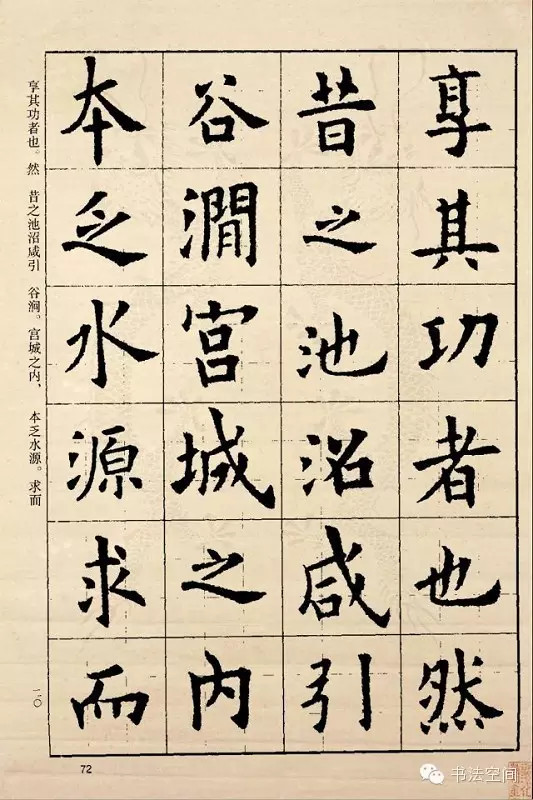 享其功者也然
昔之池沼咸引
谷澗宮城之内
本乏水源求而
享其功者也。然
昔之池沼咸引
谷涧。宫城之内、
本乏水源。求而
二〇
72
书法空间